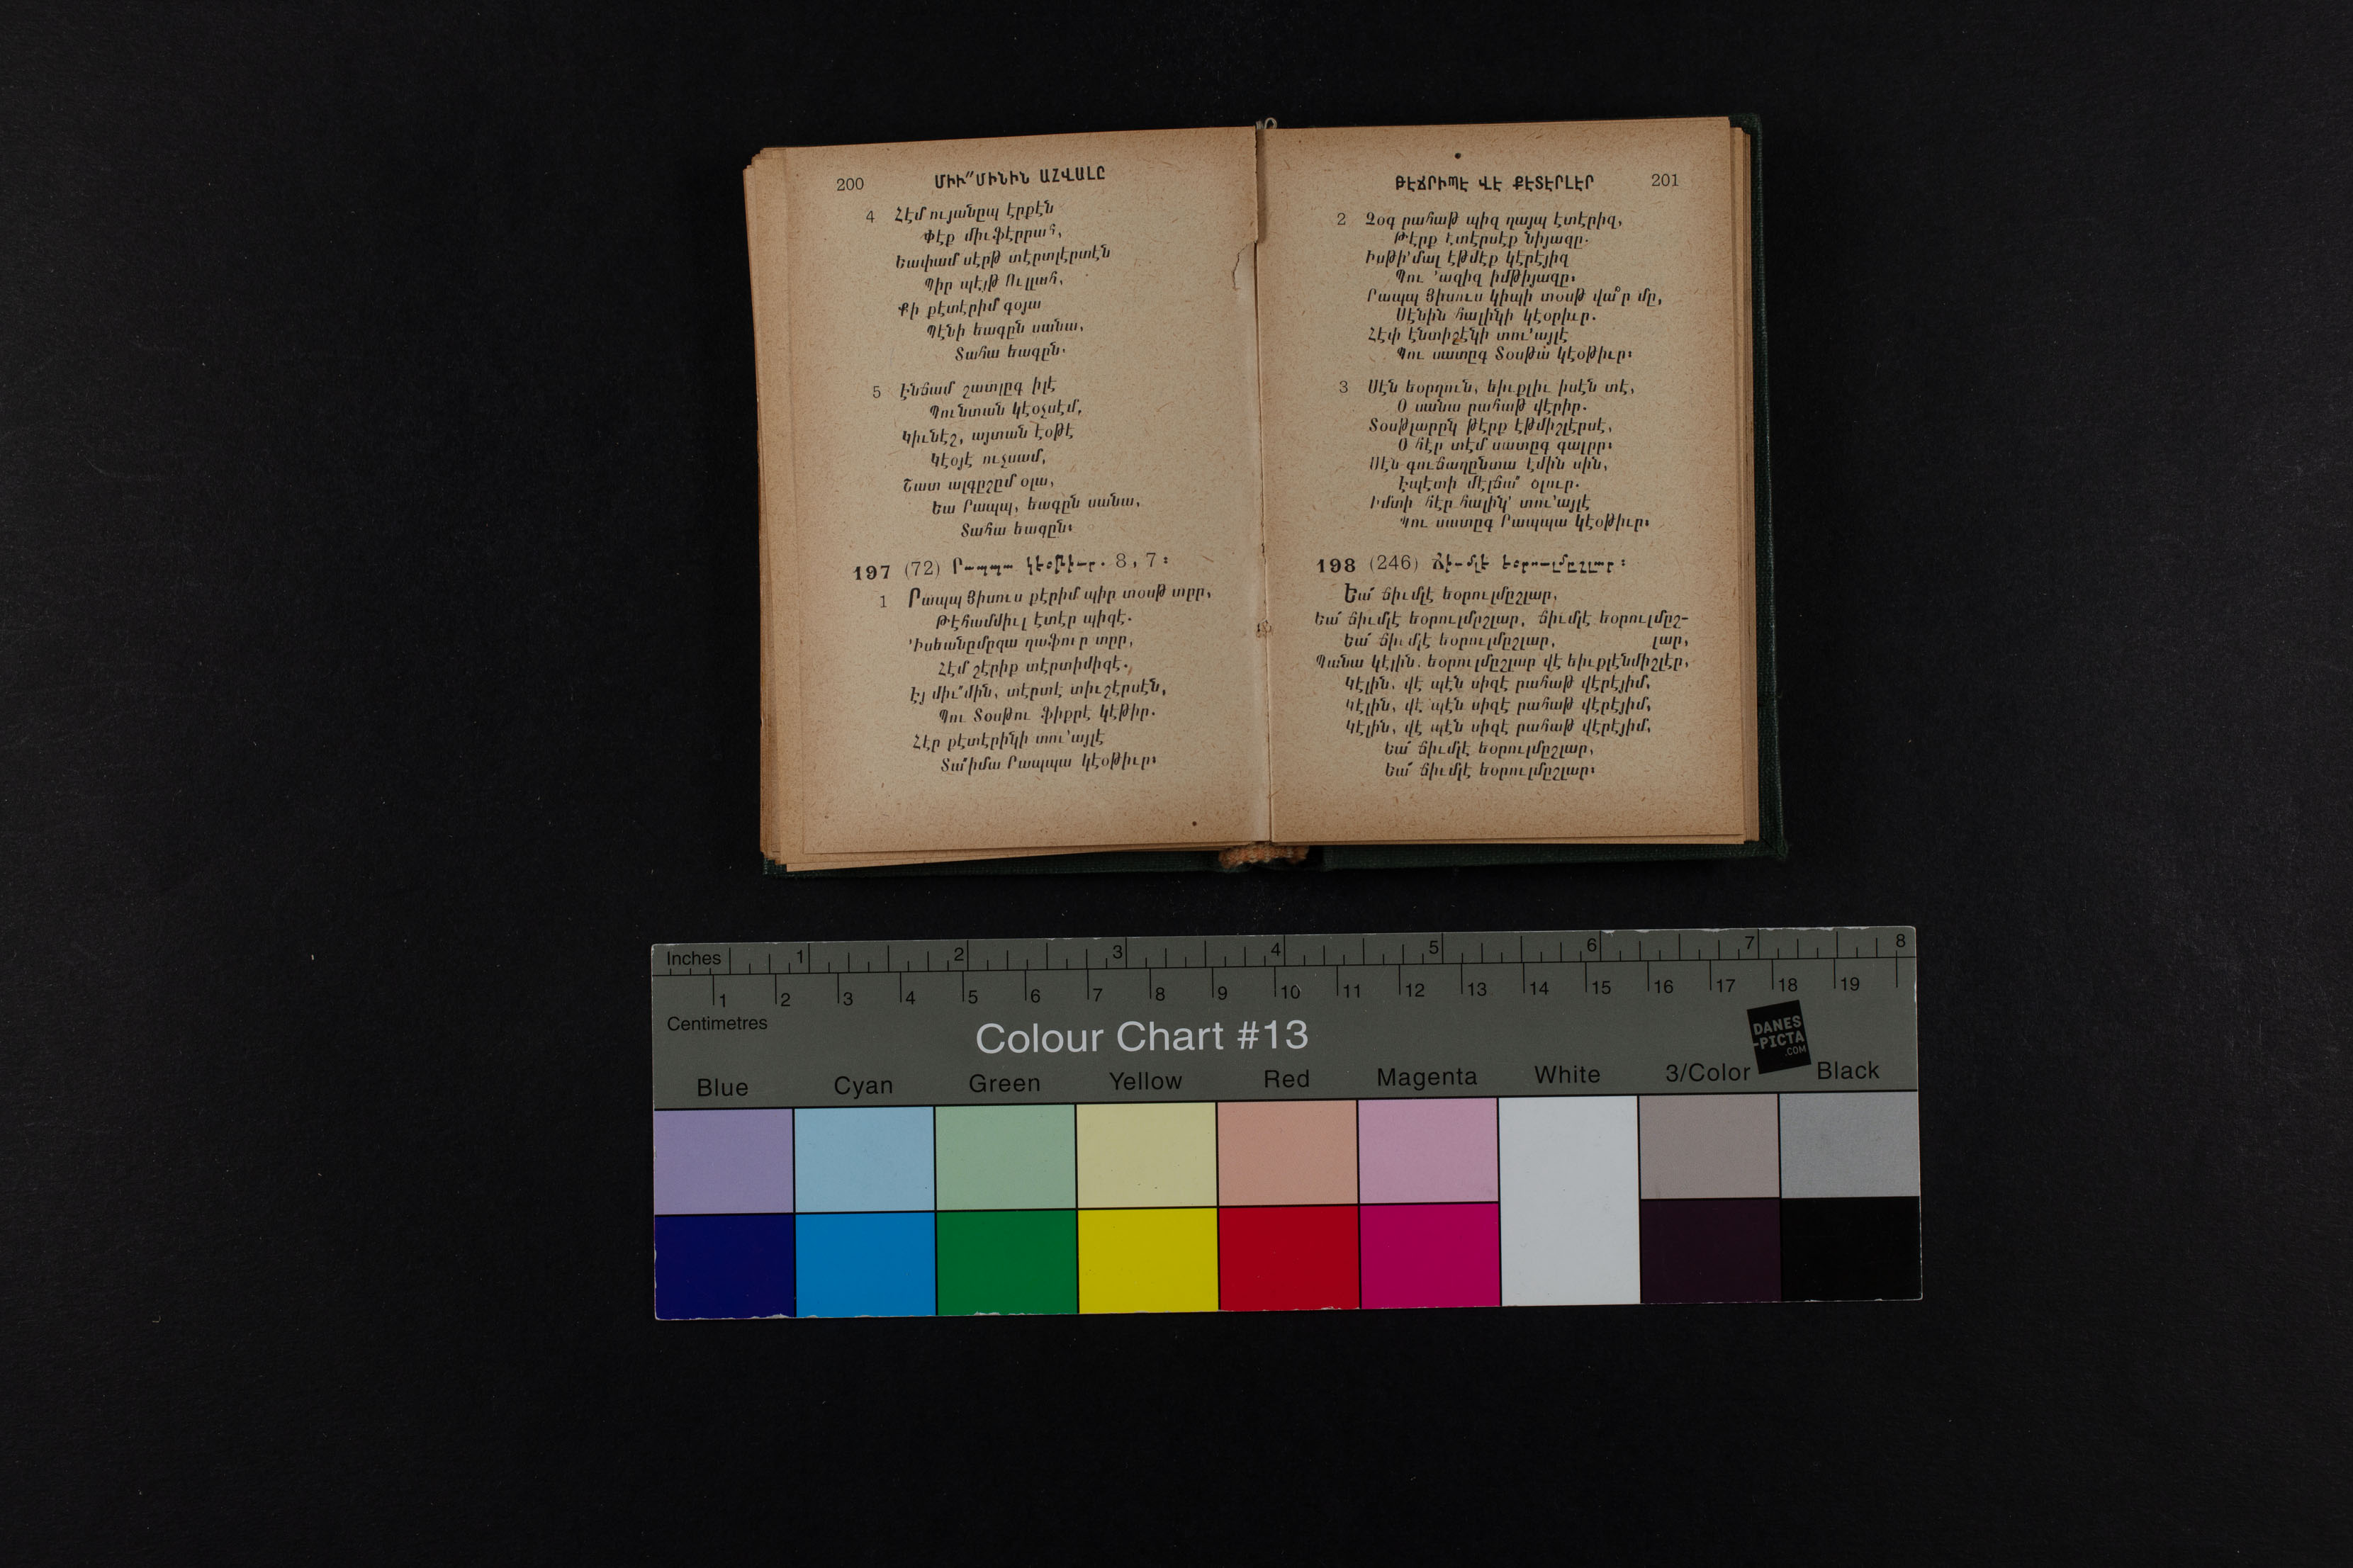 200 ՄԻՒ՞ՄԻՆԻՆ ԱՀՎԱԼԸ
4 Հէմ ույանըպ էրքէն
Փէք միւֆէրրահ,
Եափամ սէրթ տէրտլէրտէն
Պիր պէյթ Ուլլահ,
Քի քէտէրիմ գօյա
Պէնի եագըն սանա,
Տահա եագըն.
5 Էնճամ շատլըգ իլէ
Պունտան կէօչսէմ,
Կիւնէշ, այտան էօթէ
Կէօյէ ուչսամ,
Շատ ալգըշըմ օլա,
Եա Րապպ, եագըն սանա,
Տահա եագըն։
197 (72) Րապպա կէօթիւր. 8, 7։
1 Րապպ Յիսուս քէրիմ պիր տօսթ տըր,
Թէհամմիւլ էտէր պիզէ.
՚Իսեանըմըզա ղաֆուր տըր,
Հէմ շէրիք տէրտիմիզէ.
Էյ միւ՞մին, տէրտէ տիւշէրսէն,
Պու Տօսթու ֆիքրէ կէթիր.
Հէր քէտէրինի տու՚այլէ
Տա՞իմա Րապպա կէօթիւր։
ԹԷՃՐԻՊԷ ՎԷ ՔԷՏԷՐԼԷՐ 201
2 Չօգ րահաթ պիզ ղայպ էտէրիզ,
Թէրք էտէրսէք նիյազը.
Իսթի՚մալ էթմէք կէրէյիզ
Պու ՚ազիզ իմթիյազը։
Րապպ Յիսուս կիպի տօսթ վա՞ր մը,
Սէնին հալինի կէօրիւր.
Հէփ էնտիշէնի տու՚այլէ
Պու սատըգ Տօսթա կէօթիւր։
3 Սէն եօրղուն, եիւքլիւ իսէն տէ,
Օ սանա րահաթ վէրիր.
Տօսթլարըն թէրք էթմիշլէրսէ,
Օ հէր տէմ սատըգ գալըր։
Սէն գուճաղընտա էմին սին,
Էպէտի մէլճա՞ օլուր.
Իմտի հէր հալին՚ տու՚այլէ
Պու սատըգ Րապպա կէօթիւր։
198 (246) Ճիւմլէ եօրուլմըշլար։
Եա՛ ճիւմլէ եօրուլմըշլար,
Եա՛ ճիւմլէ եօրուլմըշլար, ճիւմլէ եօրուլմըշ-
Եա՛ ճիւմլէ եօրուլմըշլար, լար,
Պանա կէլին. եօրուլմըշլար վէ եիւքլէնմիշլէր,
Կէլին, վէ պէն սիզէ րահաթ վէրէյիմ,
Կէլին, վէ պէն սիզէ րահաթ վէրէյիմ,
Կէլին, վէ պէն սիզէ րահաթ վէրէյիմ,
Եա՛ ճիւմլէ եօրուլմըշլար,
Եա՛ ճիւմլէ եօրուլմըշլար։
Inches 1 2 3 4 5 6 7 8
1 2 3 4 5 6 7 8 9 10 11 12 13 14 15 16 17 18 19
Centimetres
Colour Chart #13
DANES
-PICTA
.COM
Blue Cyan Green Yellow Red Magenta White 3/Color Black